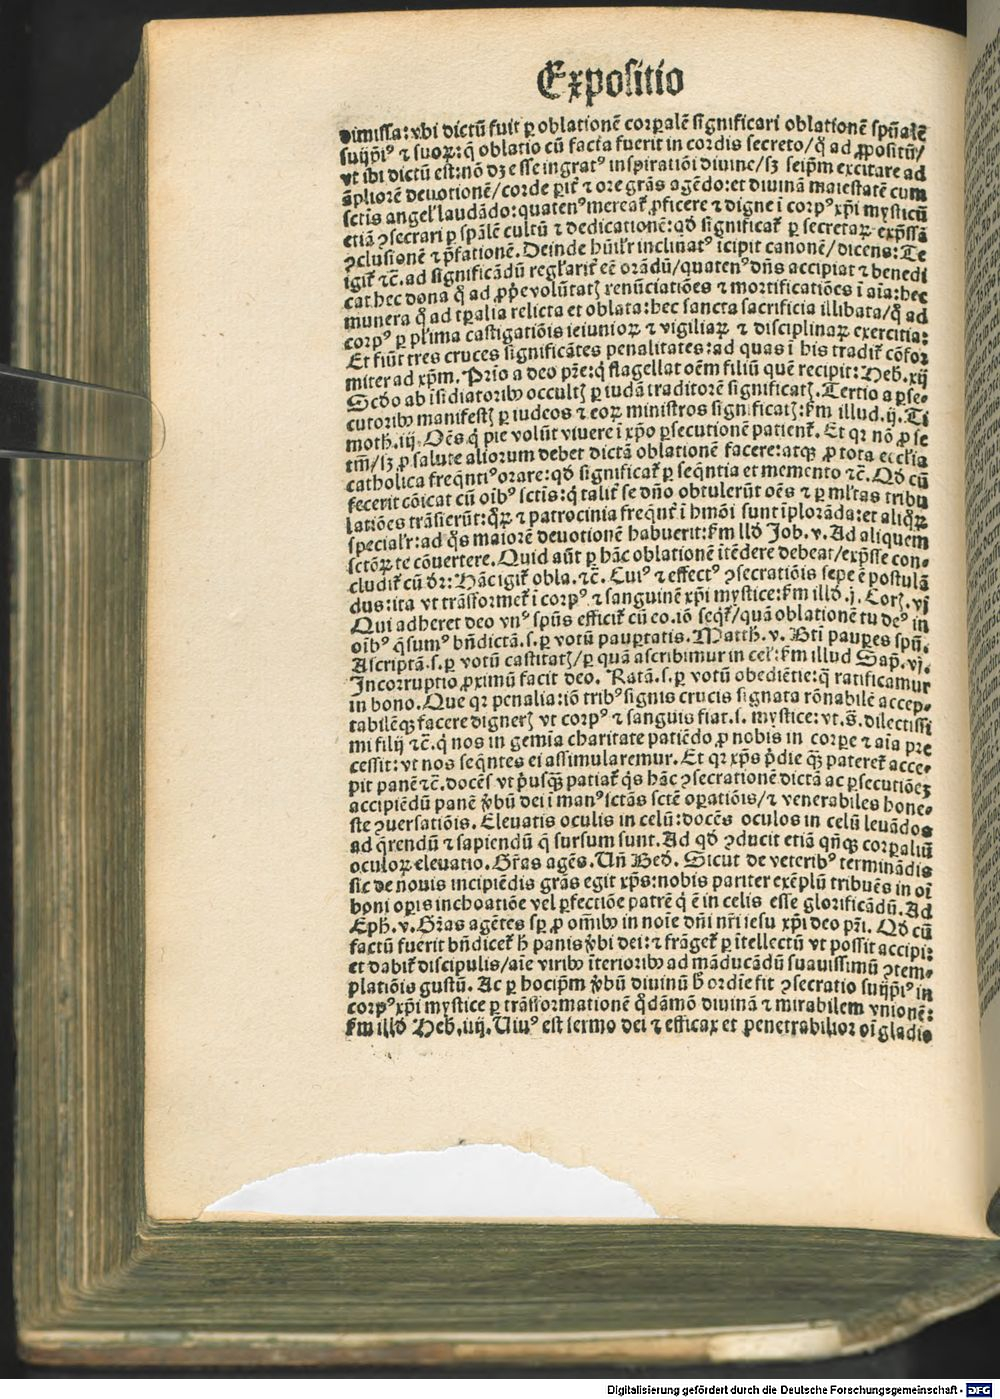 Expositio
dimissa: vbi dictū fuit ꝑ oblationē corꝑalē significari oblationē spūalē
suijpīꝰ ⁊ suoꝝ: q̄ oblatio cū facta fuerit in cordis secreto/ q̊ ad ꝓpositū/
vt ibi dictū est: nō dꝫ esse ingratꝰ inspiratiōi diuine/ sꝫ seip̄m excitare ad
āpliorē deuotionē/ corde ꝑit̄ ⁊ ore grās agēdo: et diuinā maiestatē cum
sctīs angel' laudādo: quatenꝰ mereat̄ ꝓficere ⁊ digne ī corpꝰ xp̄i mysticū
etiā ꝯsecrari ꝑ spālē cultū ⁊ dedicationē: qd̄ significat̄ ꝑ secretaꝝ exp̄ssā
ꝯclusionē ⁊ p̄fationē. Deinde hūil'r inclinatꝰ icipit canonē/ dicens: Te
igit̄ ⁊c̄. ad significādū regl'arit̄ eē orādū/ quatenꝰ dn̄s accipiat ⁊ benedi
cat hec dona q̊ ad ꝓp̄e volūtatꝭ renūciatiōes ⁊ mortificatiōes ī aīa: hec
munera q̊ ad tꝑalia relicta et oblata: hec sancta sacrificia illibata/ q̊ ad
corpꝰ ꝑ pl'ima castigatiōis ieiunioꝝ ⁊ vigiliaꝝ ⁊ disciplinaꝝ exercitia:
Et fiūt tres cruces significātes penalitates: ad quas ī his tradit̄ cōfor
miter ad xp̄m. Prīo a deo pr̄e: q̇ flagellat oēm filiū quē recipit: Heb. xij
Scd̄o ab īsidiatoribꝰ occultꝭ ꝑ iudā traditorē significatꝭ. Tertio a ꝑse-
cutoribꝰ manifestꝭ ꝑ iudeos ⁊ eoꝝ ministros significatꝭ: ẜm illud. ij. Ti
moth. iij. Oēs q̇ pie volūt viuere ī xp̄o ꝑsecutionē patient̄. Et qꝛ nō ꝓ se
tm̄/ sꝫ ꝓ salute aliorum debet dictā oblationē facere: atqꝫ ꝓ tota eccl'ia
catholica freq̄ntiꝰ orare: qd̄ significat̄ ꝑ seq̄ntia et memento ⁊c̄. Qd̄ cū
fecerit cōicat cū oībꝰ sctīs: q̇ talit̄ se dn̄o obtulerūt oēs ⁊ ꝑ ml'tas tribu
latiōes trāsierūt: qꝝ ⁊ patrocinia freq̄nt̄ ī hmōi sunt īplorāda: et aliq̊ꝝ
special'r: ad q̊s maiorē deuotionē habuerit: ẜm illd̄ Job. v. Ad aliquem
sctōꝝ te cōuertere. Quid aūt ꝑ hāc oblationē ītēdere debeat/ exp̄sse con-
cludit̄ cū dr̄: Hāc igit̄ obla. ⁊c̄. Cuiꝰ ⁊ effectꝰ ꝯsecratiōis sepe ē postulā
dus: ita vt trāsformet̄ ī corpꝰ ⁊ sanguinē xp̄i mystice: ẜm illd̄. j. Corꝭ. vj
Qui adheret deo vnꝰ spūs efficit̄ cū eo. iō seqt̄/ quā oblationē tu deꝰ in
oībꝰ q̄sumꝰ bn̄dictā. s. ꝑ votū pauꝑtatis. Matth. v. Bti pauꝑes spū.
Ascriptā. s. ꝑ votū castitatꝭ/ ꝑ quā ascribimur in cel': ẜm illud Sap. vj.
Incorruptio ꝓximū facit deo. Ratā. s. ꝑ votū obediētie: q̄ ratificamur
in bono. Que qꝛ penalia: iō tribꝰ signis crucis signata rōnabilē accep-
tabilēqꝫ facere dignerꝭ vt corpꝰ ⁊ sanguis fiat. s. mystice: vt. s̄. dilectissi
mi filij ⁊c̄. q̇ nos in gemīa charitate patiēdo ꝓ nobis in corpe ⁊ aīa pre
cessit: vt nos seq̄ntes ei assimularemur. Et qꝛ xp̄s p̄die qꝫ pateret̄ acce-
pit panē ⁊c̄. docēs vt p̄usqꝫ patiat̄ q̇s hāc ꝯsecrationē dictā ac ꝑsecutiōeꝫ
accipiēdū panē v̄bū dei ī manꝰ sctās sctē oꝑatiōis/ ⁊ venerabiles hone-
ste ꝯuersatiōis. Eleuatis oculis in celū: docēs oculos in celū leuādos
ad q̄rendū ⁊ sapiendū q̄ sursum sunt. Ad qd̄ ꝯducit etiā qn̄qꝫ corꝑaliū
oculoꝝ eleuatio. Gr̄as agēs. Un̄ Bed. Sicut de veteribꝰ terminādis
sic de nouis incipiēdis grās egit xp̄s: nobis pariter exēplū tribuēs in oī
boni oꝑis inchoatiōe vel ꝑfectiōe patrē q̇ ē in celis esse glorificādū. Ad
Eph. v. Gr̄as agētes sꝑ ꝓ om̄ibꝰ in noīe dn̄i nr̄i iesu xp̄i deo pr̄i. Qd̄ cū
factū fuerit bn̄dicet̄ h̄ panis v̄bi dei: ⁊ frāget̄ ꝑ ītellectū vt possit accipi:
et dabit̄ discipulis/ aīe viribꝰ īterioribꝰ ad māducādū suauissimū ꝯtem-
platiōis gustū. Ac ꝑ hocip̄m v̄bū diuinū h̄ ordīe fit ꝯsecratio suijpīꝰ in
corpꝰ xp̄i mystice ꝑ trāsformationē q̇dāmō diuinā ⁊ mirabilem vnionē:
ẜm illd̄ Heb. iiij. Uiuꝰ est sermo dei ⁊ efficax et penetrabilior oī gladio
Digitalisierung gefördert durch die Deutsche Forschungsgemeinschaft - DFG